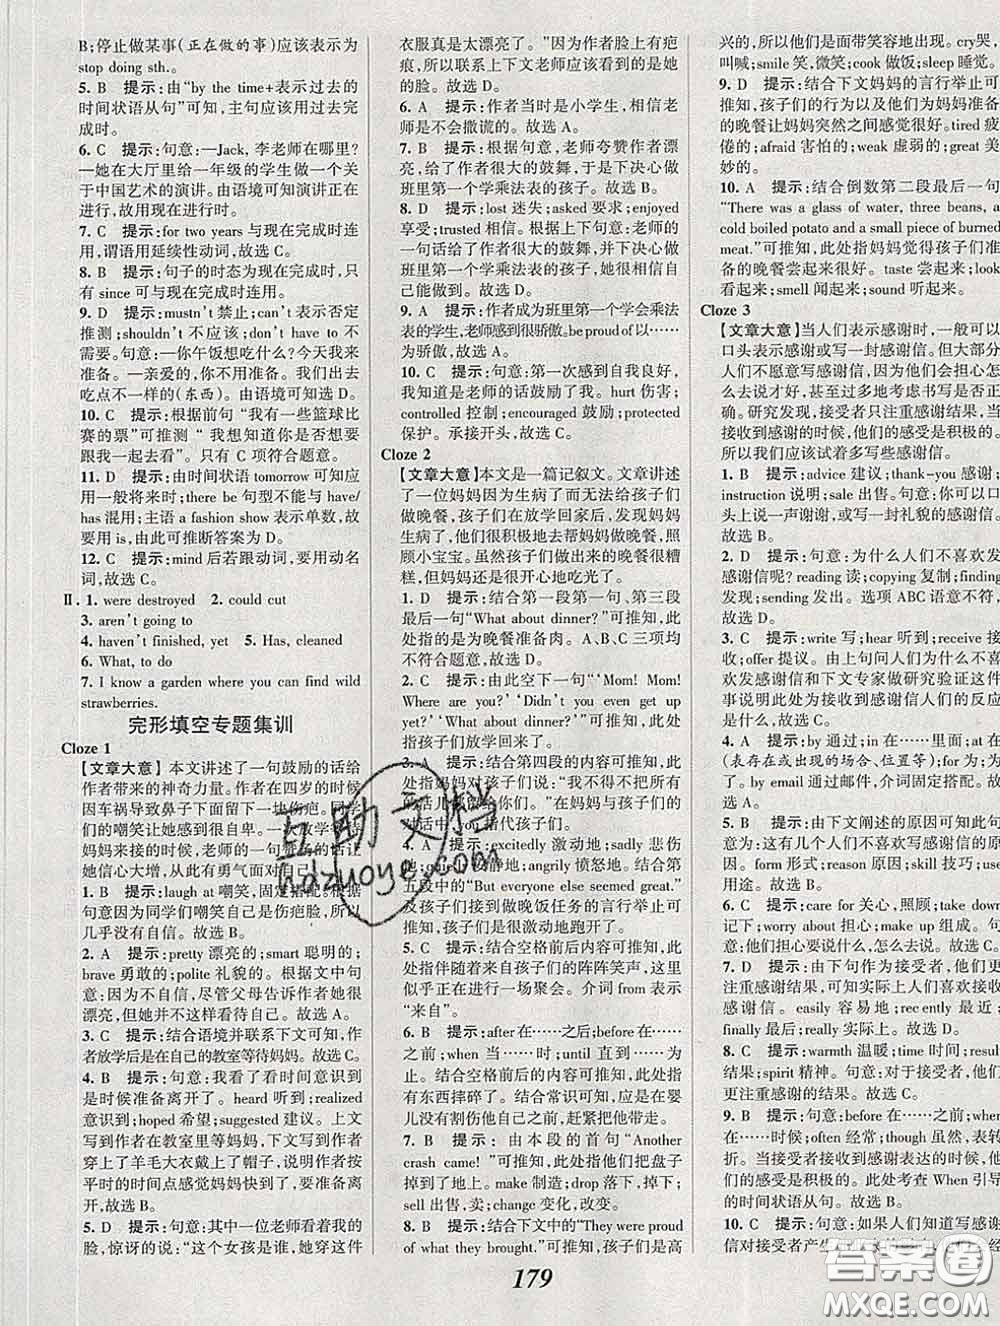 B;停止做某事(正在做的事)应该表示为
stop doing sth.。
5. B　提示:由“by the time+表示过去的
时间状语从句”可知,主句应该用过去完
成时。
6. C　提示:句意:—Jack, 李老师在哪里?
—她在大厅里给一年级的学生做一个关
于中国艺术的演讲。由语境可知演讲正在
进行,故用现在进行时。
7. C　提示:for two years 与现在完成时连
用,谓语用延续性动词,故选 C。
8. B　提示:句子的时态为现在完成时,
只有 since 可与现在完成时连用。
9. D　提示:mustn't 禁止;can't 表示否定
推测;shouldn't 不应该;don't have to 不
需要。句意:—你午饭想吃什么?今天我来
做。—亲爱的,你不用准备。我们出去
吃点不一样的(东西)。由语境可知选 D。
10. C　提示:根据前句“我有一些篮球比
赛的票”可推测“我想知道你是否想要
跟我一起去看”。只有 C 项符合题意。
11. D　提示:由时间状语 tomorrow 可知
用一般将来时;there be 句型不能与 have/
has 混用;主语 a fashion show 表示单数,故
要用 is,由此可推断答案为 D。
12. C　提示:mind 后若跟动词,用动名
词,故选 C。
Ⅱ. 1. were destroyed　2. could cut
3. aren't going to
4. haven't finished, yet　5. Has, cleaned
6. What, to do
7. I know a garden where you can find wild
strawberries.
完形填空专题集训
Cloze 1
【文章大意】本文讲述了一句鼓励的话给
作者带来的神奇力量。作者在四岁的时候
因车祸导致鼻子下面留了一个伤疤。同学
们的嘲笑让她感到很自卑。一次放学等待
妈妈来接的时候,老师的一句赞扬的话让
她信心大增,从此有勇气面对自己
1. B　提示:laugh at 嘲笑,固定搭配。根据
句意因为同学们都嘲笑自己是伤疤脸,所以
几乎没有自信。故选 B。
2. A　提示:pretty 漂亮的;smart 聪明的;
brave 勇敢的;polite 礼貌的。根据文中句
意:因为不自信,尽管父母告诉作者她很
漂亮,但她并不这样认为。故选 A。
3. C　提示:结合语境并联系下文可知,作
者放学后是在自己的教室等待妈妈。故选 C。
4. B　提示:句意:我看了看时间意识到
是时候准备离开了。heard 听到;realized
意识到;hoped 希望;suggested 建议。上文
写到作者在教室里等妈妈,下文写到作者
穿上了羊毛大衣戴上了帽子,说明作者按
平时的时间点感觉妈妈快到了,要准备出
去。故选 B。
5. D　提示:句意:其中一位老师看着我的
脸,惊讶的说:“这个女孩是谁,她穿这件
衣服真是太漂亮了。”因为作者脸上有疤
痕,所以联系上下文老师应该看到的是她的
脸。故选 D。
6. A　提示:作者当时是小学生,相信老
师是不会撒谎的。故选 A。
7. B　提示:根据句意,老师夸赞作者漂
亮,给了作者很大的鼓舞,于是下决心做
班里第一个学乘法表的孩子。故选 B。
8. D　提示:lost 迷失;asked 要求;enjoyed
享受;trusted 相信。根据上下句意:老师的
一句话给了作者很大的鼓舞,并下决心做
班里第一个学乘法表的孩子,她很相信自
己能做到。故选 D。
9. A　提示:作者成为班里第一个学会乘法
表的学生,老师感到很骄傲。be proud of 以……
为骄傲。故选 A。
10. C　提示:第一次感到自我良好,
我知道是老师的话鼓励了我。hurt 伤害;
controlled 控制;encouraged 鼓励;protected
保护。承接开头,故选 C。
Cloze 2
【文章大意】本文是一篇记叙文。文章讲述
了一位妈妈因为生病了而无法给孩子们
做晚餐,孩子们在放学回家时,发现妈妈
生病了,他们很积极地去帮妈妈做晚餐,照
顾小宝宝。虽然孩子们做出来的晚餐很糟
糕,但妈妈还是很开心地吃光了。
1. D　提示:结合第一段第一句、第三段
最后一句“What about dinner?”可推知,
此处指的是为晚餐准备肉。A、B、C 三项均
不符合题意,故选 D。
2. C　提示:由此空下一句“‘Mom! Mom!
Where are you?’‘Didn't you even get up
yet?’‘What about dinner?’”可推知,此
处指孩子们放学回来了。故选 C。
3. A　提示:结合第四段的内容可推知,
此处指妈妈对孩子们说:“我不得不把所有
告诉你们。”在妈妈与孩子们的
对话中 you 指代孩子们。故选 A。
4. A　提示:excitedly 激动地;sadly 悲伤
地;angrily 愤怒地。结合第
五段中的“But everyone else seemed great.”
及孩子们接到做晚饭任务的言行举止可
推知,孩子们是很激动地跑开了。
5. C　提示:结合空格前后内容可推知,此
处伴随着来自孩子们的阵阵笑声,厨房
似乎正在进行一场聚会。介词 from 表示
“来自”。
6. B　提示:after 在……之后;before 在……
之前;when 当……时;until 直到……为止。
结合空格前的内容可推知,此处指
有东西摔碎了。结合常识可知,应是在婴
儿没有割伤他自己之前,赶紧把他带走。
7. B　提示:由本段的首句“Another
crash came!”可推知,他们把盘子
掉到了地上。make 制造;drop 落下,掉下;
sell 出售,卖;change 变化,改变。
8. B　提示:结合下文中的“They were proud
of what they brought.”可推知,孩子们是高
兴的,所以他们是面带笑容地出现。cry哭,
叫喊;smile 笑,微笑;cook 做饭;sleep 睡觉。
9. D　提示:结合下文妈妈的言行举止可
推知,孩子们的行为以及他们为妈妈准备
的晚餐让妈妈突然之间感觉很好。tired 疲
倦的;afraid 害怕的;weak 虚弱的;great 美
妙的。
10. A　提示:结合倒数第二段最后一句
“There was a glass of water, three beans, a
cold boiled potato and a small piece of burned
meat.”可推知,此处指妈妈觉得孩子们准
备的晚餐尝起来很好。taste 尝起来;look
看起来;smell 闻起来;sound 听起来。
Cloze 3
【文章大意】当人们表示感谢时,一般可以
口头表示感谢或写一封感谢信。但大部分
人们不愿意写感谢信。因为他们会担心怎
么去说才好,甚至过多地考虑书写是否正
确。研究发现,接受者只注重感谢结果,当
接收到感谢的时候,他们的感受是积极的。
所以我们应该试着多写些感谢信。
1. B　提示:advice 建议;thank-you 感谢;
instruction 说明;sale 出售。句意:你可以口
头上说一声谢谢,或写一封礼貌的感谢信。
故选 B。
2. D　提示:句意:为什么人们不喜欢发
感谢信呢?reading 读;copying 复制;finding
发现;sending 发出。选项 ABC 语意不符,
故选 D。
3. C　提示:write 写;hear 听到;receive 接
收;offer 提议。由上句问人们为什么不喜
欢发感谢信和下文专家做研究验证这件
事说明此处为接收到感谢信人们的反应
故选 C。
4. A　提示:by 通过;in 在……里面;at 在
(表存在或出现的场合、位置等);for 为;为
了。by email 通过邮件,介词固定搭配。故
选 A。
5. B　提示:由下文阐述的原因可知此句
意为:这有几个人们不喜欢写感谢信的原
因。form 形式;reason 原因;skill 技巧;use
用途。故选 B。
6. C　提示:care for 关心,照顾;take down
记下;worry about 担心;make up 组成。句
意:他们担心要说什么,怎么去说。故选 C。
7. D　提示:由下句作为接受者,他们更
注重感谢结果,可知实际上人们喜欢接收
感谢信。easily 容易地;recently 最近;
finally 最后;really 实际上。故选 D。
8. C　提示:warmth 温暖;time 时间;result
结果;spirit 精神。句意:对于接受者,他们
更注重感谢结果。故选 C。
9. B　提示:句意:before 在……之前;when
在……时候;often 经常;though 虽然,表转
折。当接受者接收到感谢表达的时候,他
们的感受是积极的。此处考查 When 引导
的时间状语从句。故选 B。
10. C　提示:句意:如果人们知道写感谢
信对接受者产生
179
互助文档
hdzuoye.com
答案圈
MXQE.COM